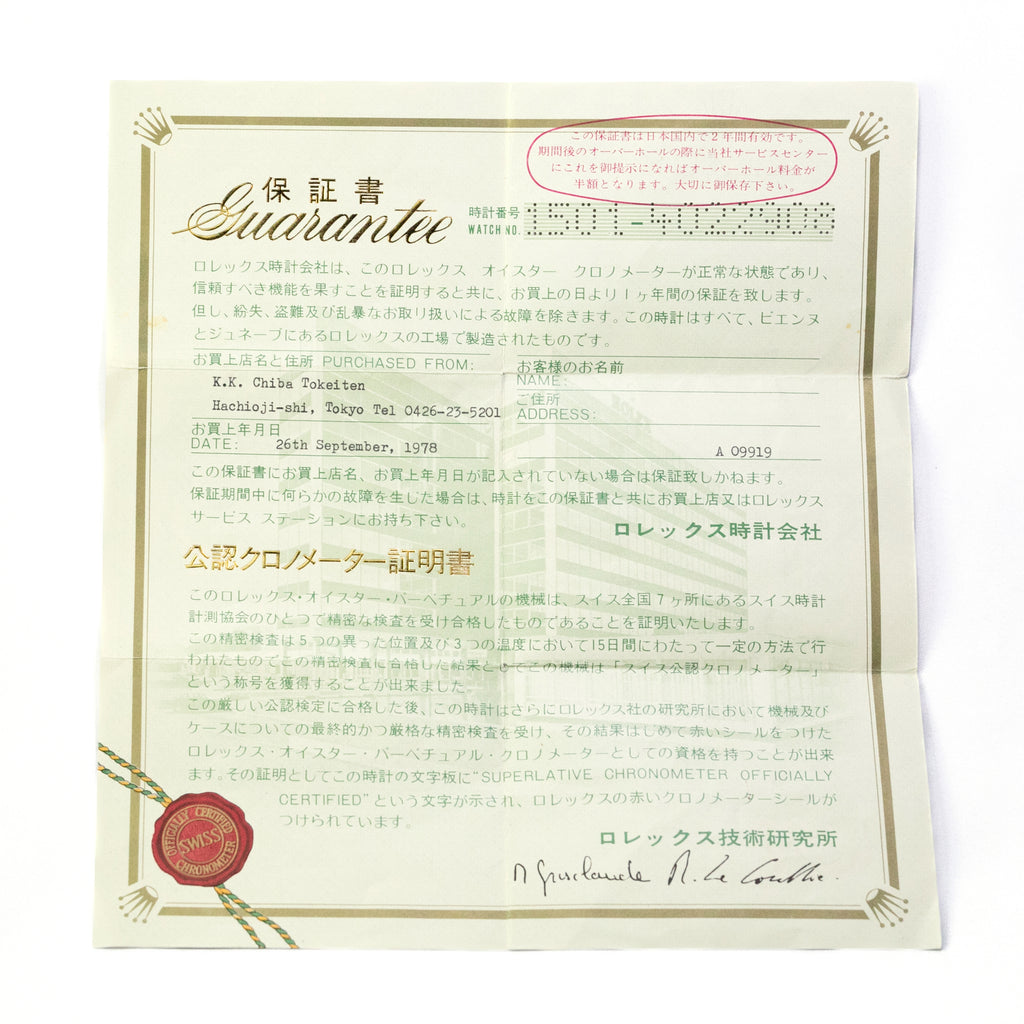 この保証書は日本国内で2年間有効です。
期間後のオーバーホールの際に当社サービスセンター
にこれを御提示になればオーバーホール料金が
半額となります。大切に御保存下さい。
保証書
Guarantee
時計番号
WATCH NO. 1501-4022908
ロレックス時計会社は、このロレックス オイスター クロノメーターが正常な状態であり、
信頼すべき機能を果すことを証明すると共に、お買上の日より1ヶ年間の保証を致します。
但し、紛失、盗難及び乱暴なお取り扱いによる故障を除きます。この時計はすべて、ビエンヌ
とジュネーブにあるロレックスの工場で製造されたものです。
お買上店名と住所 PURCHASED FROM:
K.K. Chiba Tokeiten
Hachioji-shi, Tokyo Tel 0426-23-5201
お買上年月日
DATE: 26th September, 1978
お客様のお名前
NAME:
ご住所
ADDRESS:
A 09919
この保証書にお買上店名、お買上年月日が記入されていない場合は保証致しかねます。
保証期間中に何らかの故障を生じた場合は、時計をこの保証書と共にお買上店又はロレックス
サービス ステーションにお持ち下さい。
ロレックス時計会社
公認クロノメーター証明書
このロレックス・オイスター・パーペチュアルの機械は、スイス全国7ヶ所にあるスイス時計
計測協会のひとつで精密な検査を受け合格したものであることを証明いたします。
この精密検査は5つの異った位置及び3つの温度において15日間にわたって一定の方法で行
われたものでこの精密検査に合格した結果としてこの機械は「スイス公認クロノメーター」
という称号を獲得することが出来ました。
この厳しい公認検定に合格した後、この時計はさらにロレックス社の研究所において機械及び
ケースについての最終的かつ厳格な精密検査を受け、その結果はじめて赤いシールをつけた
ロレックス・オイスター・パーペチュアル・クロノメーターとしての資格を持つことが出来
ます。その証明としてこの時計の文字板に“SUPERLATIVE CHRONOMETER OFFICIALLY
CERTIFIED”という文字が示され、ロレックスの赤いクロノメーターシールが
つけられています。
OFFICIALLY CERTIFIED
SWISS
CHRONOMETER
ロレックス技術研究所